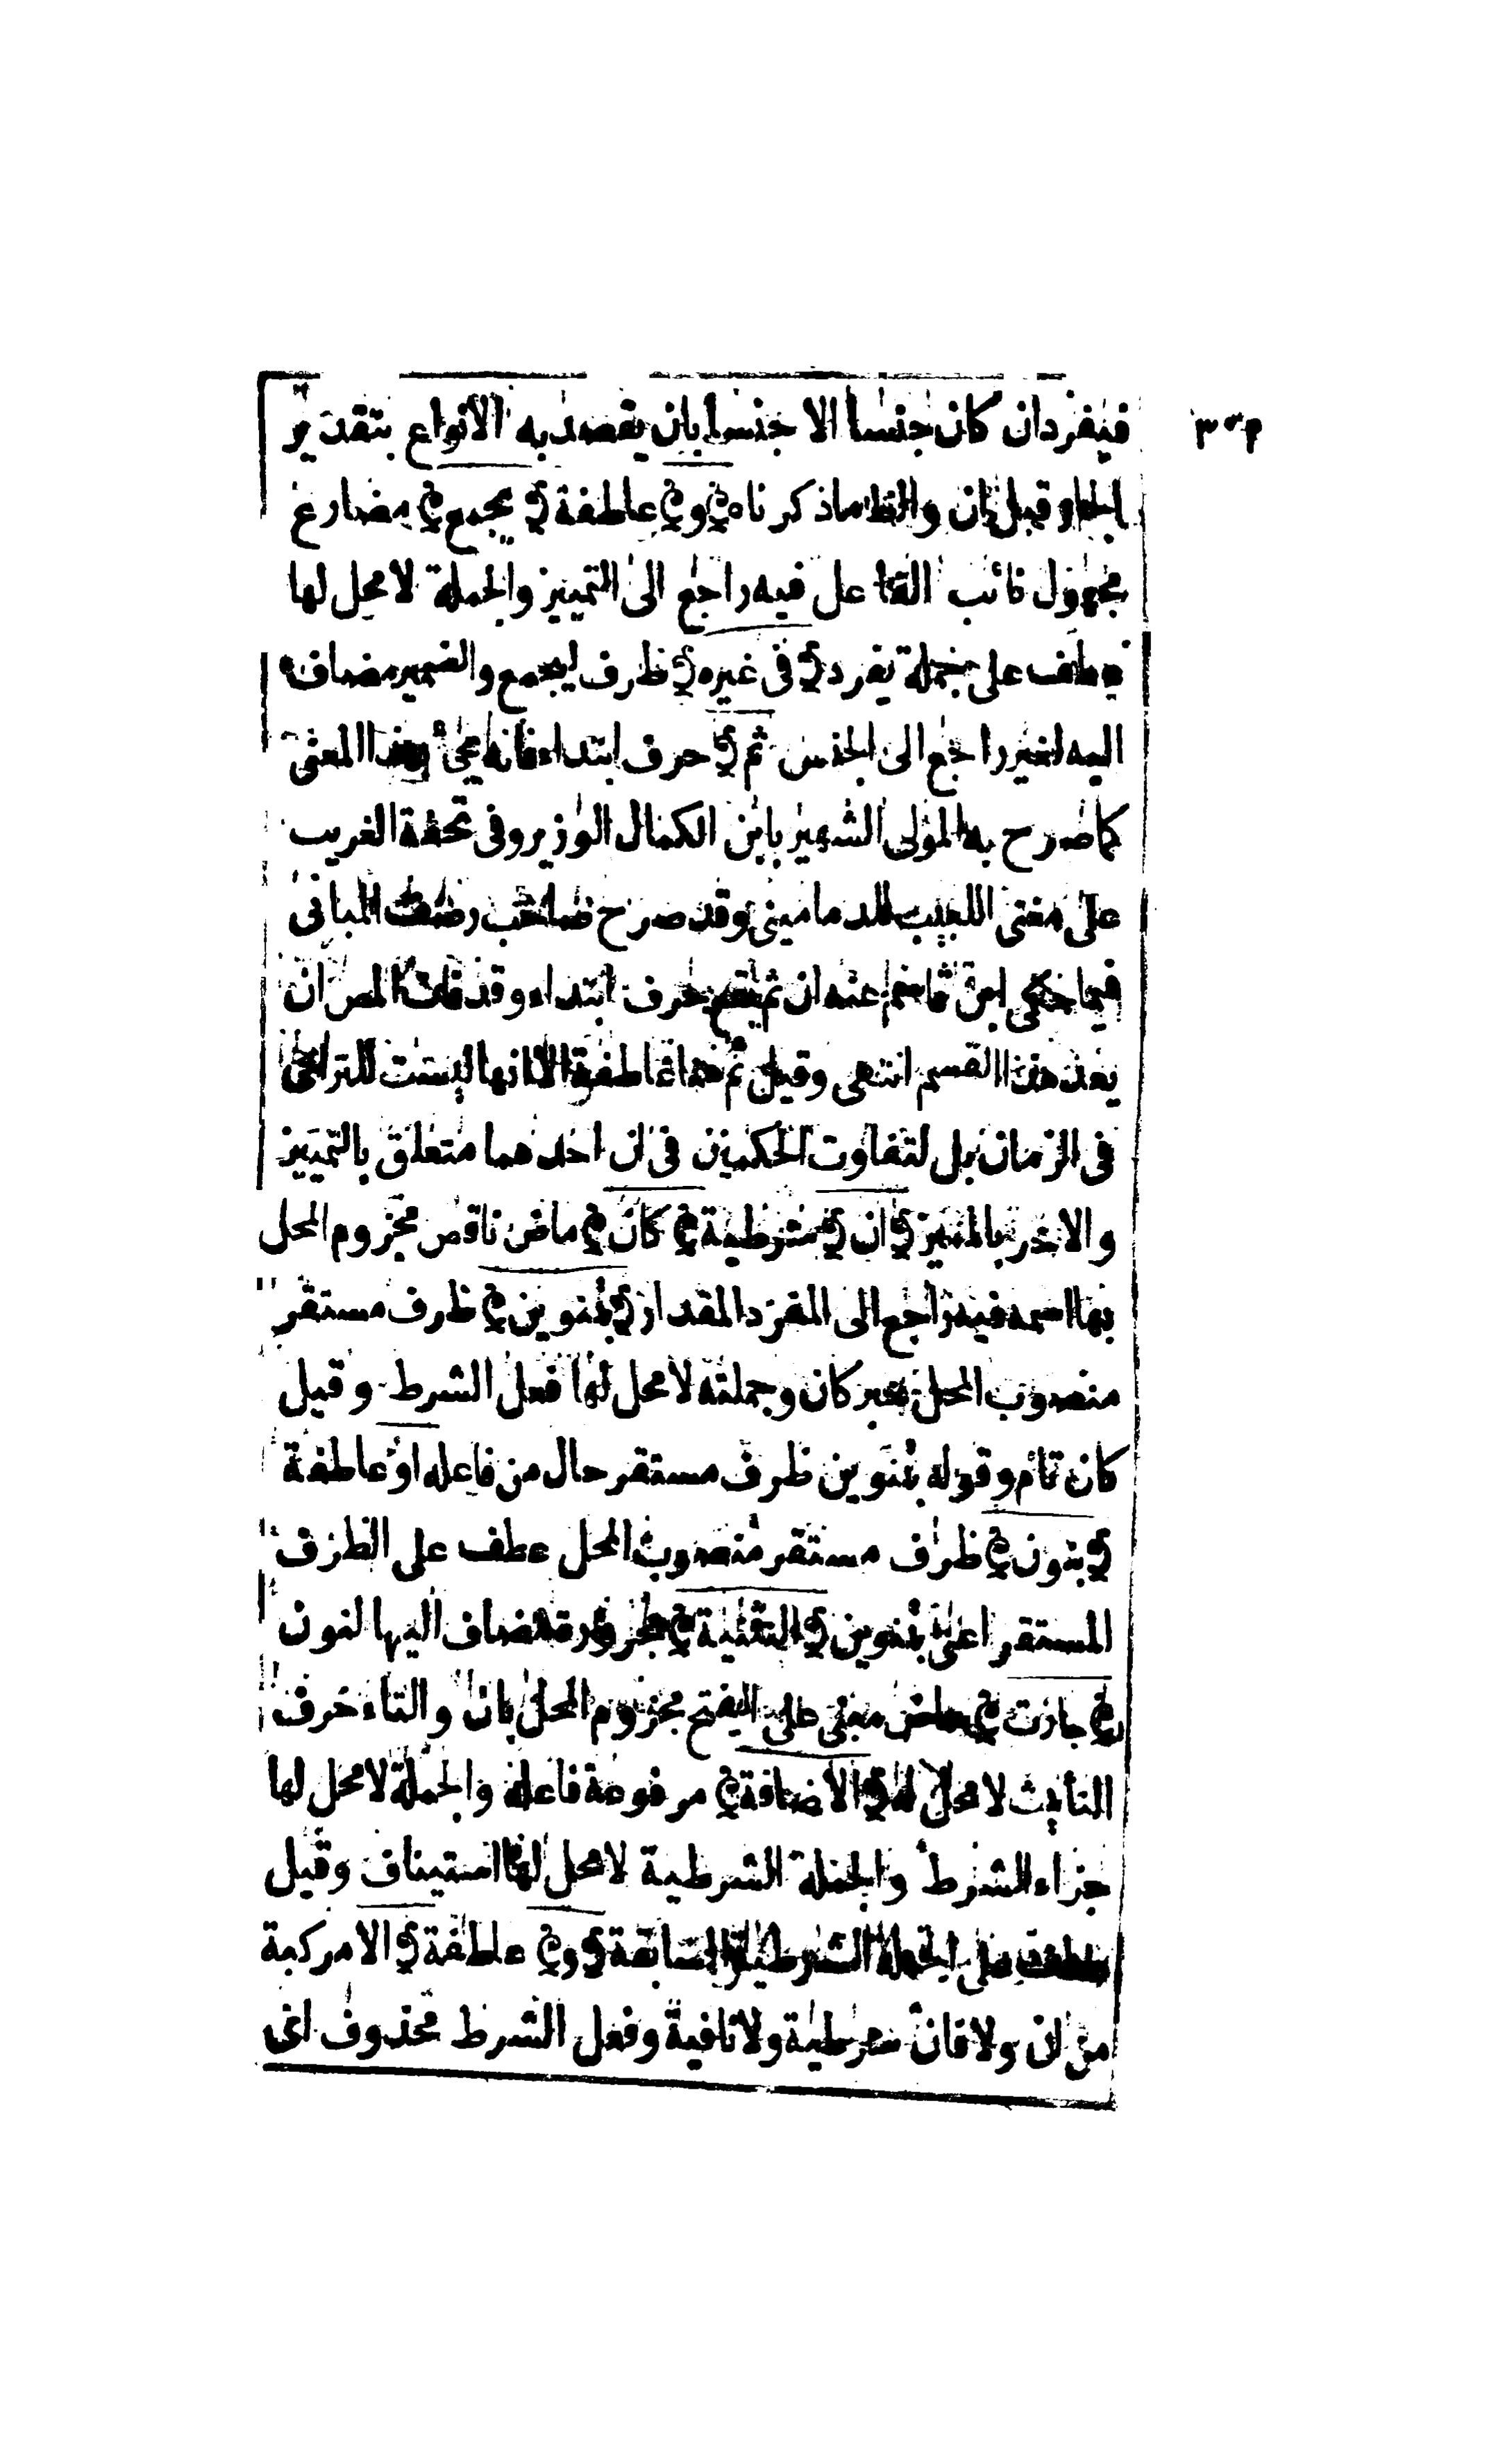 فيفرد ان كان جنسا الا جنسا بان يقصد به الانواع بتقدير
الجار قبل ان والظ ماذكرناه ﴿و﴾ عاطفة ﴿يجمع﴾ مضارع
مجهول نائب الفاعل فيه راجع الى التمييز والجملة لا محل لها
عطف على جملة يفرد ﴿فى غيره﴾ ظرف ليجمع والضمير مضاف
اليه لغير راجع الى الجنس ﴿ثم﴾ حرف ابتداء فانه يجئ بهذا المعنى
كما صرح به المولى الشهير بابن الكمال الوزير وفى تحفة الغريب
على مغنى اللبيب للدمامينى وقد صرح صاحب رصف المبانى
فيما حكى ابن قاسم عنه ان ثم يقع حرف ابتداء وقد فات المص ان
يعد هذا القسم انتهى وقيل ثم هنا عاطفة الا انها ليست للتراخى
فى الزمان بل لتفاوت الحكمين فى ان احدهما متعلق بالتمييز
والاخر بالمميز ﴿ان﴾ شرطية ﴿كان﴾ ماض ناقص مجزوم المحل
بها اسمه فيه راجع الى المفرد المقدار ﴿بتنوين﴾ ظرف مستقر
منصوب المحل خبر كان وجملته لا محل لها فعل الشرط وقيل
كان تام وقوله بتنوين ظرف مستقر حال من فاعله او عاطفة
﴿بنون﴾ ظرف مستقر منصوب المحل عطف على الظرف
المستقر اعنى بتنوين ﴿التثنية﴾ مجرورة مضاف اليها لنون
﴿جازت﴾ ماض مبنى على الفتح مجزوم المحل بان والتاء حرف
التأنيث لا محل له ﴿الاضافة﴾ مرفوعة فاعله والجملة لا محل لها
جزاء الشرط والجملة الشرطية لا محل لها استيناف وقيل
عطف على الجملة الشرطية السابقة ﴿و﴾ عاطفة ﴿الا﴾ مركبة
من ان ولا فان شرطية ولا نافية وفعل الشرط محذوف اى